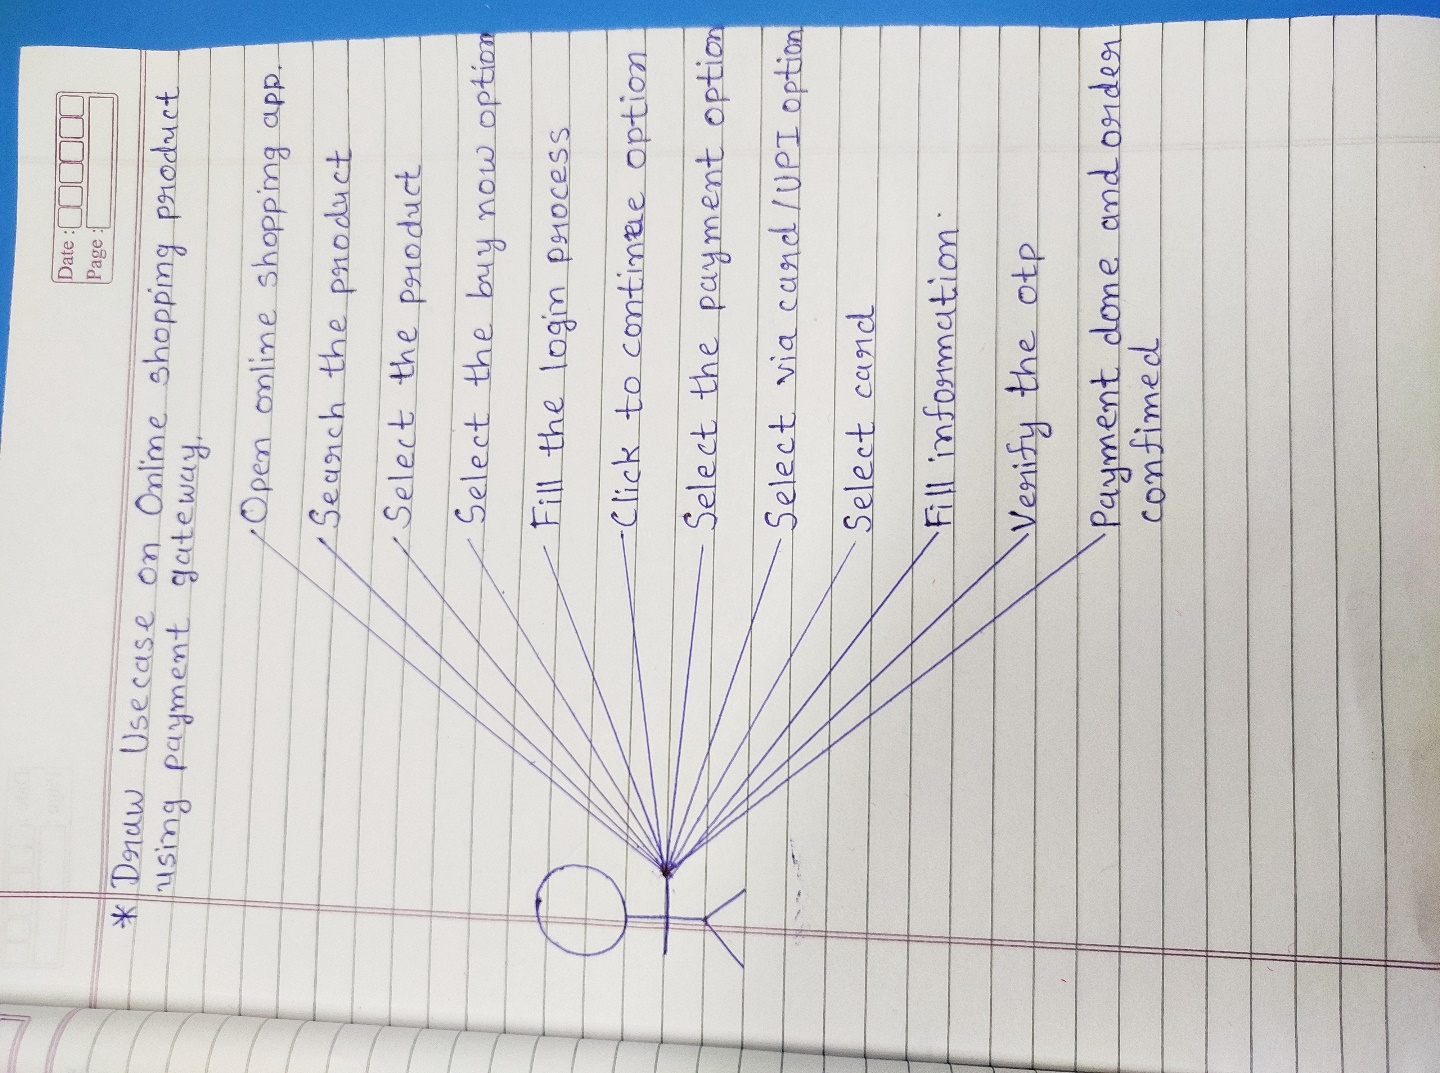 Date :
Page :
* Draw Usecase on Online shopping product
using payment gateway.
Open online shopping app.
Search the product
Select the product
Select the buy now option
Fill the login process
Click to continue option
Select the payment option
Select via card/UPI option
Select card
Fill information.
Verify the otp
Payment done and order
confimed